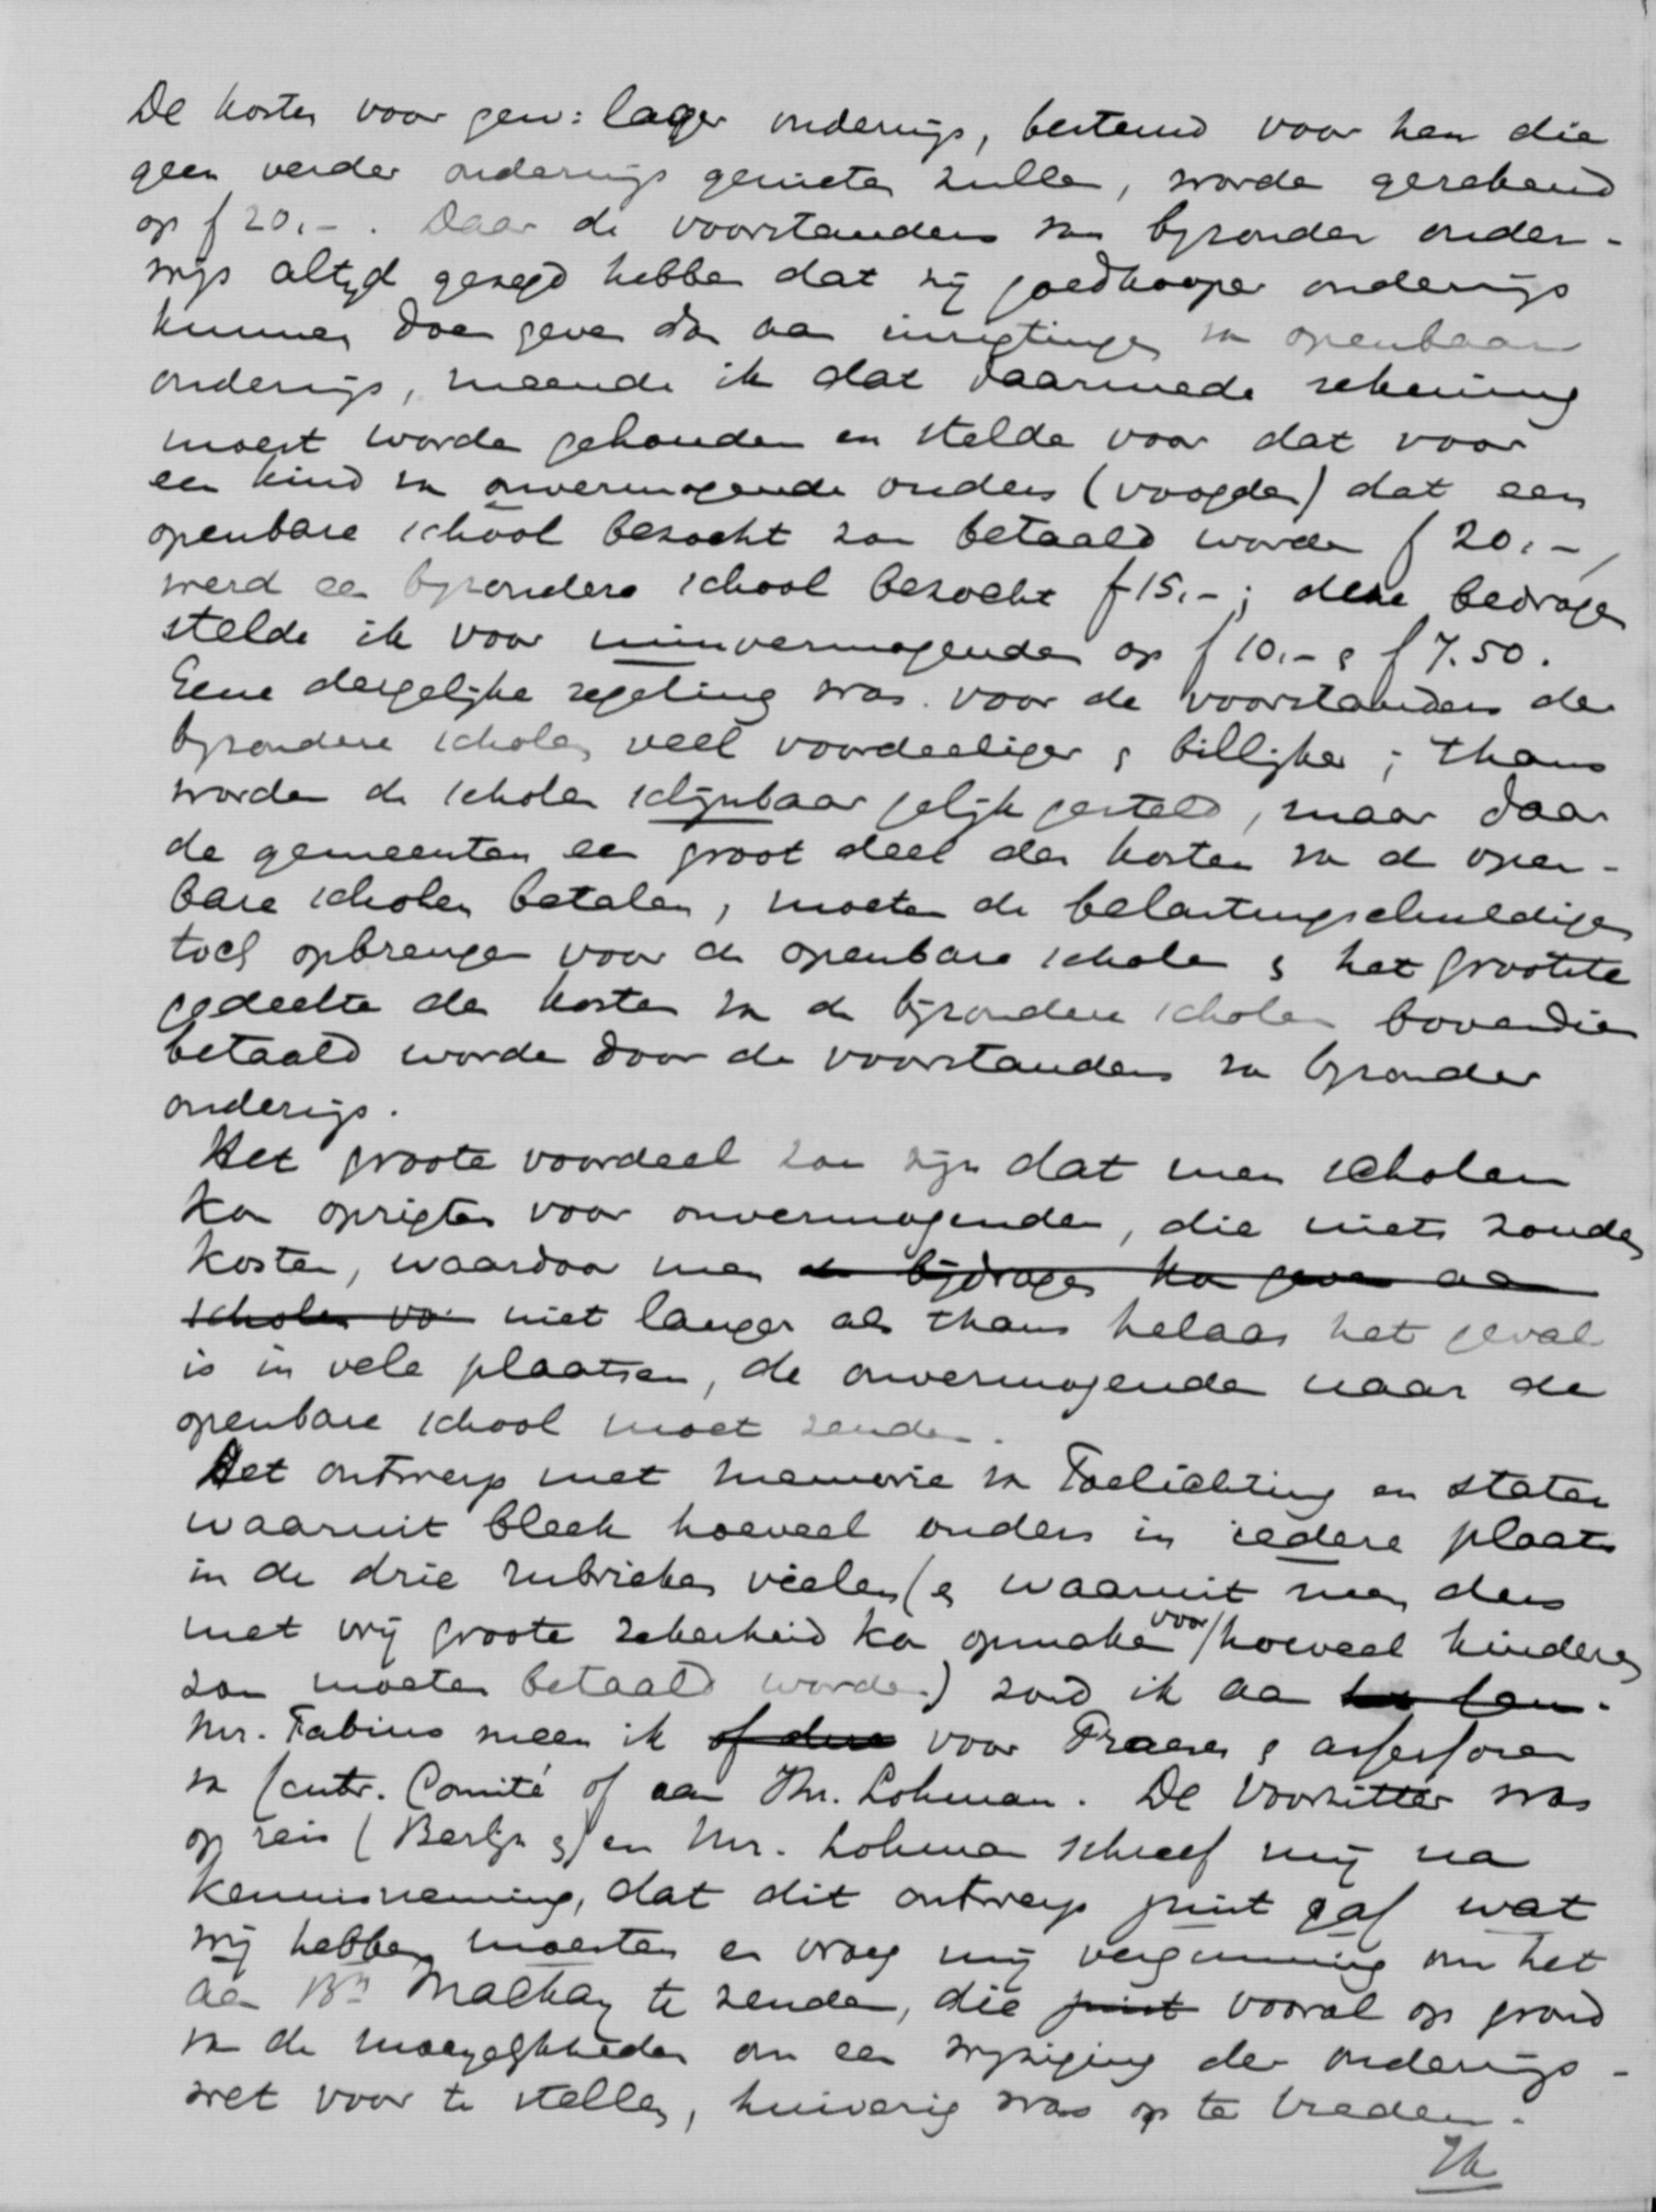 De kosten voor gew: lager onderwijs, bestemd voor hen die
geen verder onderwijs genieten zullen, worden gerekend
op f 20.-. Daar de voorstanders van byzonder onder-
wijs altyd gezegd hebben dat zij goedkooper onderwijs
kunnen doen geven dan aan inrigtingen van openbaar
onderwijs, meende ik dat daarmede rekening
moest worden gehouden en stelde voor dat voor
een kind van onvermogende ouders (voogden) dat een
openbare school bezocht zou betaald worden f 20.-,
werd een byzondere school bezocht f 15.-; deze bedragen
stelde ik voor minvermogenden op f 10.- & f 7.50.
Eene dergelijke regeling was voor de voorstanders der
byzondere scholen veel voordeeliger & billijker; thans
worden de scholen schijnbaar gelijk gesteld, maar daar
de gemeenten een groot deel der kosten van de open-
bare scholen betalen, moeten de belastingschuldigen
toch opbrengen voor de openbare scholen & het grootste
gedeelte der kosten van de byzondere scholen bovendien
betaald worden door de voorstanders van byzonder
onderwijs.
Het groote voordeel zou zijn dat men scholen
kon oprigten voor onvermogenden, die niets zouden
kosten, waardoor men de bijdragen kon geven aan
scholen vo niet langer als thans helaas het geval
is in vele plaatsen, de onvermogenden naar de
openbare school moet zenden.
Het ontwerp met memorie van Toelichting en staten
waaruit bleek hoeveel ouders in iedere plaats
in de drie rubrieken vielen (& waaruit men dus
met vrij groote zekerheid kon opmaken voor/hoeveel kinderen
zou moeten betaald worden) zond ik aan
Mr. Fabius meen ik of dus voor Praeses & assessoren
van Centr. Comité of aan Mr. Lohman. De Voorzitter was
op reis (Berlijn &) en Mr. Lohman schreef mij na
kennisneming, dat dit ontwerp juist gaf wat
wij hebben moesten en vroeg mij vergunning om het
aan Bn Mackay te zenden, die juist vooral op grond
van de moeyelykheden om een wyziging der onderwijs-
wet voor te stellen, huiverig was op te treden.
Ik